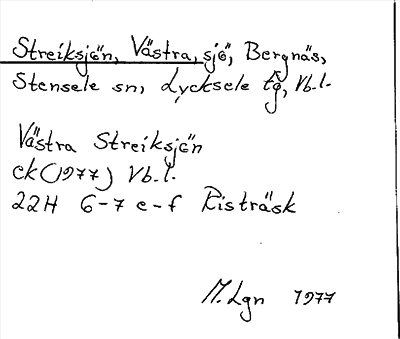 Streiksjön, Västra, sjö, Bergnäs,
Stensele sn, Lycksele tg, Vb.l.
Västra Streiksjön
ek (1977) Vb.l.
22H 6-7 e-f Risträsk
M.Lgn 1977